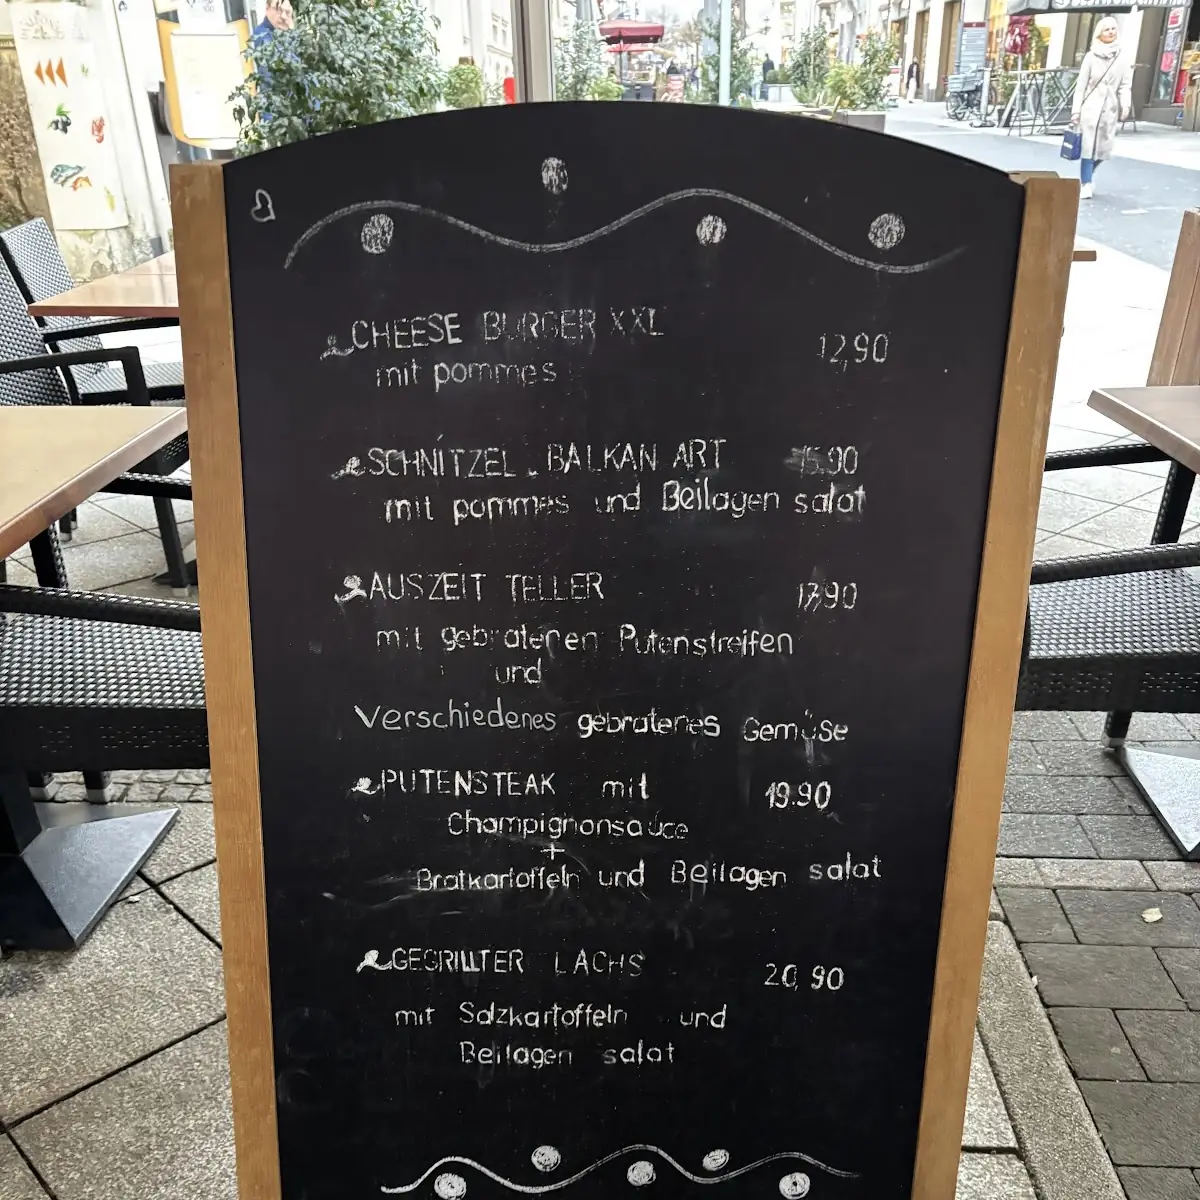 CHEESE BURGER XXL 12,90
mit pommes
SCHNITZEL. BALKAN ART 15.90
mit pommes und Beilagen salat
AUSZEIT TELLER 17,90
mit gebratenen Putenstreifen
und
Verschiedenes gebratenes Gemüse
PUTENSTEAK mit 19.90
Champignonsauce
+
Bratkartoffeln und Beilagen salat
GEGRILLTER LACHS 20,90
mit Salzkartoffeln und
Beilagen salat